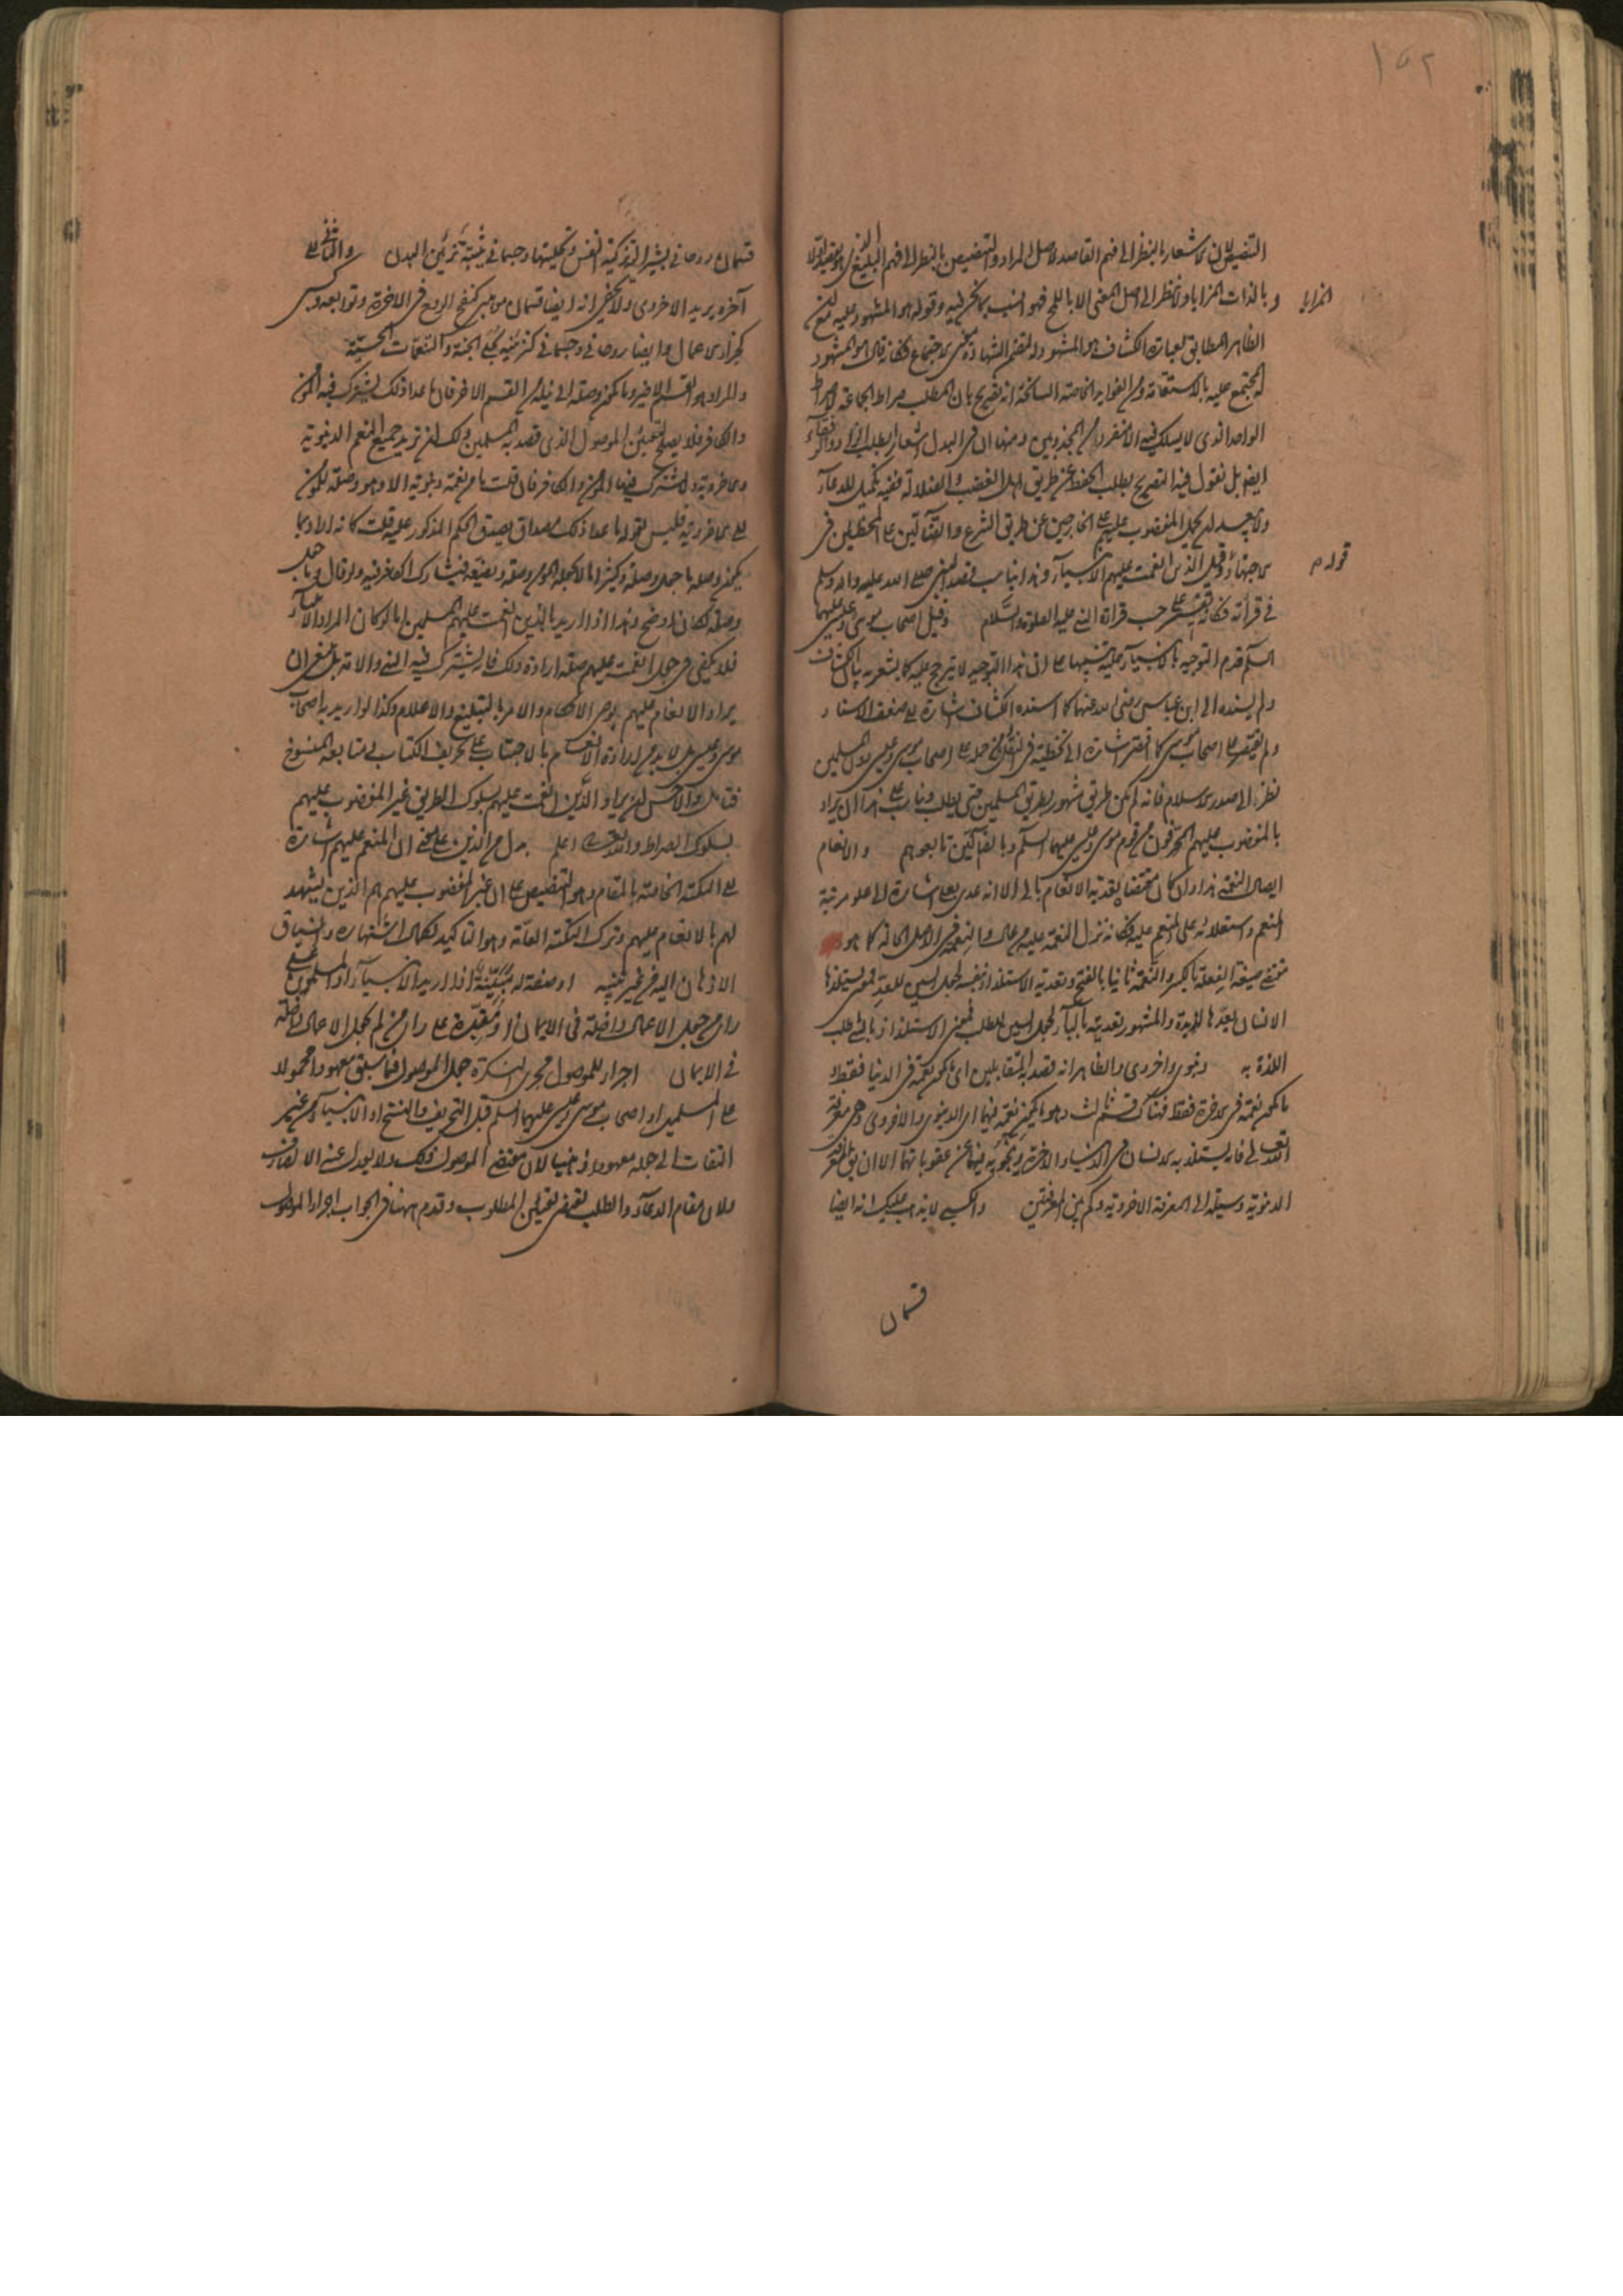 ١٥٢
التنصيص بالنظر الى فهم القاصد لاصل المراد والتنصيص بالنظر الى فهم البليغ
المزايا
و بالذات المزايا ولا نظر الى اصل المعنى الا باللمح فهو انسب بما نحن فيه وقوله هو المشهود عليه
الظاهر المطابق لعبارة الكشاف هو المشهود له لتضمن الشهادة معنى الاجتماع فكانه قال هو المشهود
المجتمع عليه بالاستقامة ومن الفوايد الخاصة انه تصريح بان المطلب صراط الجماعة لا صراط
الواحد الذى لا يسلك فيه الا منفردا من المجذوبين ومنها ان فى البدل اشعارا بطلب
ايضا بل نقول فيه التصريح بطلب الحفظ عن طريق اهل الغضب والضلالة ففيه تكميل للدعاء
ولا يبعد ان يجعل المغضوب عليهم على الخارجين عن طريق الشرع والضآلين على المخطئين فى
قوله
الاجتهاد وقيل الذين انعمت عليهم الانبياء وهذا يناسب قصد النبى صلى الله عليه واله وسلم
فى قراءته فكانه تفسير على حسب قراءة النبى عليه الصلوة والسلام وقيل اصحاب موسى وعيسى عليهما
السلام قدم التوجيه بالانبياء
ولم يسنده الى ابن عباس رضى الله عنهما كما اسنده الكشاف اشارة الى ضعف الاسناد
ولم يقتصر على اصحاب موسى كما اقتصر اشارة الى
نظرا الى صدر الاسلام فانه لم يكن طريق مشهور بطريق المسلمين حتى يطلب ويناسب على هذا ان يراد
بالمغضوب عليهم المحرفون من قوم موسى وعيسى عليهما السلام وبالضآلين تابعوهم والانعام
ايصال النعمة هذا وان كان مقتضاه تعدية الانعام بالى الا انه عدى بعلى اشارة الى علو مرتبة
المنعم واستعلائه على المنعم عليه فكانه نزل النعمة عليه من عال والنعمة فى الاصل الحالة كما هو
مقتضى صيغة الفعلة بالكسر والنعمة ثانيا بالفتح وتعدية الاستلذاذ بنفسه لجعل السين للعد فمعنى يستلذها
الانسان يعدها لذيذة والمشهور تعديته بالباء لجعل السين للطلب فمعنى الاستلذاذ بالشئ طلب
اللذة به دنيوى واخروى والظاهر انه قصد بالمتقابلين اى ما يكون نعمة فى الدنيا فقط و
ما يكون نعمة فى الاخرة فقط فهناك قسم ثالث وهو ما يكون نعمة فيهما اى الدنيوى والاخروى وهى معرفة
الله تعالى فانه يستلذ به الانسان فى الدنيا والاخرة وينجو به فيهما عن عقوباتهما الا ان يق المعرفة
الدنيوية وسيلة الى المعرفة الاخروية وكم بين المعرفتين والكسبى لا يذهب عليك انه ايضا
قسمان
قسمان روحانى يشير اليه تزكية النفس وتحليتها وجسمانى يثبته تزيين البدن والثانى الى
آخره يريد الاخروى ولا يخفى انه ايضا قسمان موهبى كنفخ الروح فى الاخرة وتوابعه وكسبى
كجزاء الاعمال وايضا روحانى وجسمانى كنز الجنة والنعمات الحسية
والمراد هو القسم الاخير وما يكون وصلة الى نيله من القسم الاخر فان ما عدا ذلك يشترك فيه المؤمن
والكافر فلا يصلح لتعيين الموصول الذى قصد به المسلمين ولك ان تريد جميع النعم الدنيوية
والاخروية ولا يشترك فيها المؤمن والكافر فان قلت ما من نعمة دنيوية الا وهو وصلة للمؤمن
الى الاخروية فليس لقوله ما عدا ذلك مصداق يصدق الحكم المذكور عليه قلت كانه اراد بما
يكون وصلة ما جعل وصلة وكثيرا ما لا يجعله المؤمن وصلة ويضيعه فيشارك الكافر فيه ولو قال وما جعل
وصلة لكان اوضح وهذا اذا اريد بالذين انعمت عليهم المسلمين اما لو كان المراد الانبياء
فلا يكفى فى جعل انعمت عليهم صلة ارادة ذلك فانه يشترك فيه النبى والامة بل ينبغى ان
يراد الانعام عليهم بوحى الاحكام والامر بالتبليغ والاعلام وكذا لو اريد به اصحاب
موسى وعيسى بل لا بد من ارادة الانعام بالاجتناب عن تحريف الكتاب او متابعة المنسوخ
فتامل والاحسن ان يراد الذين انعمت عليهم بسلوك الطريق غير المغضوب عليهم
بسلوك الصراط والله تعالى اعلم بدل من الذين على معنى ان المنعم عليهم اشارة
الى النكتة الخاصة بالمقام وهو التنصيص على ان غير المغضوب عليهم هم الذين يشهد
لهم بالانعام عليهم وترك النكتة العامة وهو التاكيد لكمال اشتهاره وانسياق
الاذهان اليه من غير تنبيه او صفة له مبينة اذا اريد الانبياء او المسلمون على
راى من جعل الاعمال داخلة فى الايمان او مقيدة على راى من لم يجعل الاعمال داخلة
فى الايمان اجراء للموصول مجرى النكرة جعل الموصول فيما سبق معهودا محمولا
على المسلمين او اصحاب موسى وعيسى عليهما السلم قبل التحريف والنسخ او الانبياء من غير
التفات الى جعله معهودا ذهنيا لان مقتضى الموصول ذلك ولا يعدل عنه الا لصارف
ولان مقام الدعاء والطلب يقتضى تعيين المطلوب وقدم ههنا فى الجواب اجراء الموصول